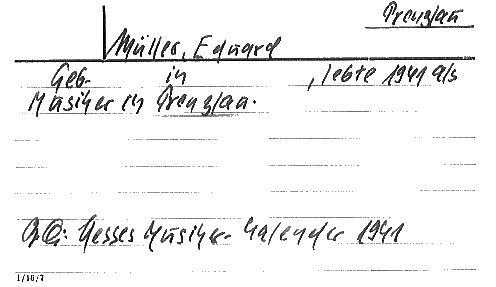 Prenzlau
Müller, Eduard
Geb. in , lebte 1941 als
Musiker in Prenzlau.
Hesses Musiker-Kalender 1941
1/16/7